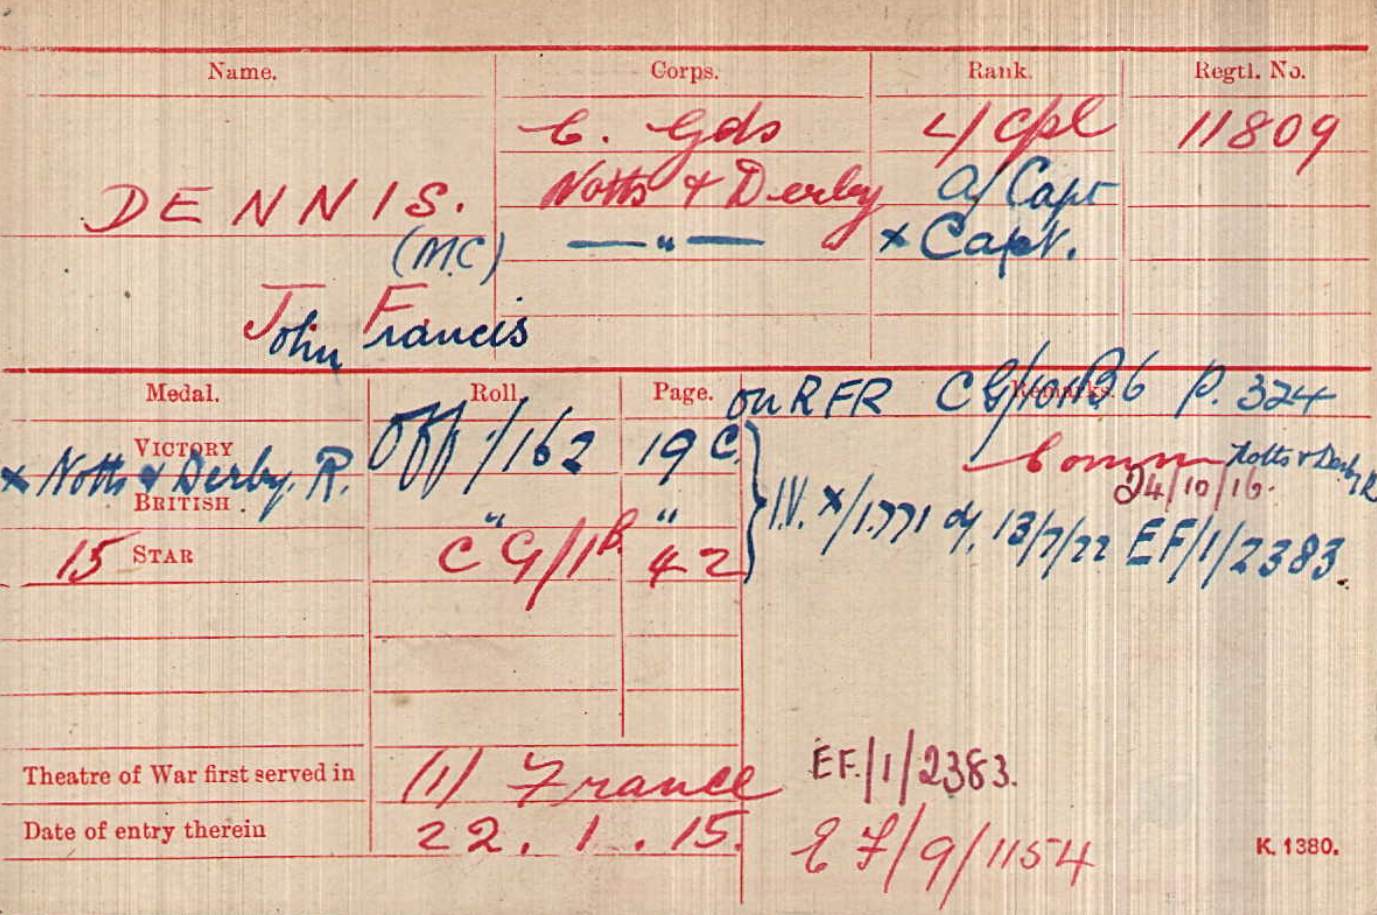 Name. Corps. Rank. Regtl. No.
C. Gds L/Cpl 11809
DENNIS. Notts & Derby A/Capt
(MC) — " — x Capt.
John Francis
Medal. Roll. Page. Remarks.
on RFR CG/101B6 P. 324
VICTORY Off/162 19 C.
x Notts & Derby. R.
Comm Notts & Derby R
24/10/16.
BRITISH " "
I.V. x/1.771 dy. 13/7/22 EF/1/2383.
15 STAR CG/1B. 42
Theatre of War first served in (1) France
EF./1/2383.
Date of entry therein 22.1.15.
EF/9/1154
K. 1380.